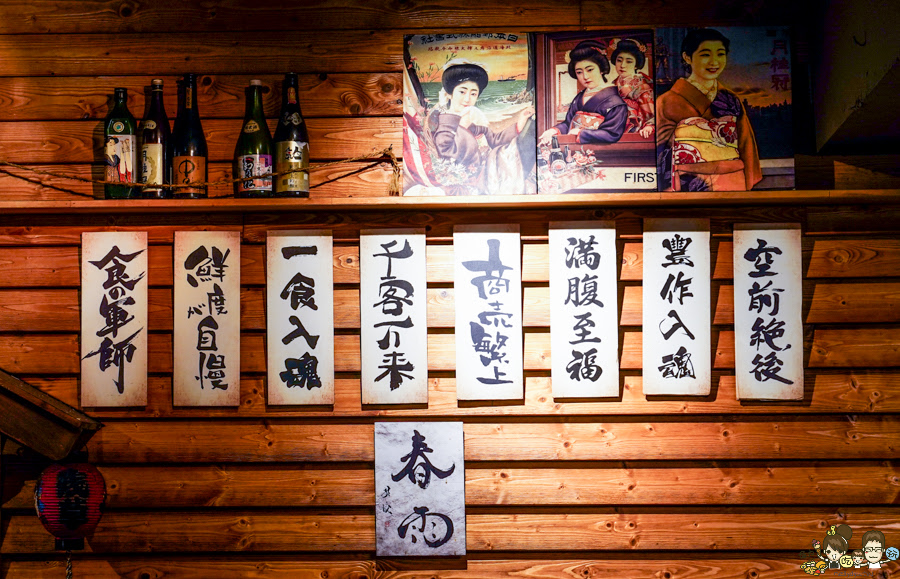 FIRST
食の軍師
鮮度が自慢
一食入魂
千客万来
商売繁上
満腹至福
豊作入魂
空前絶後
春雨